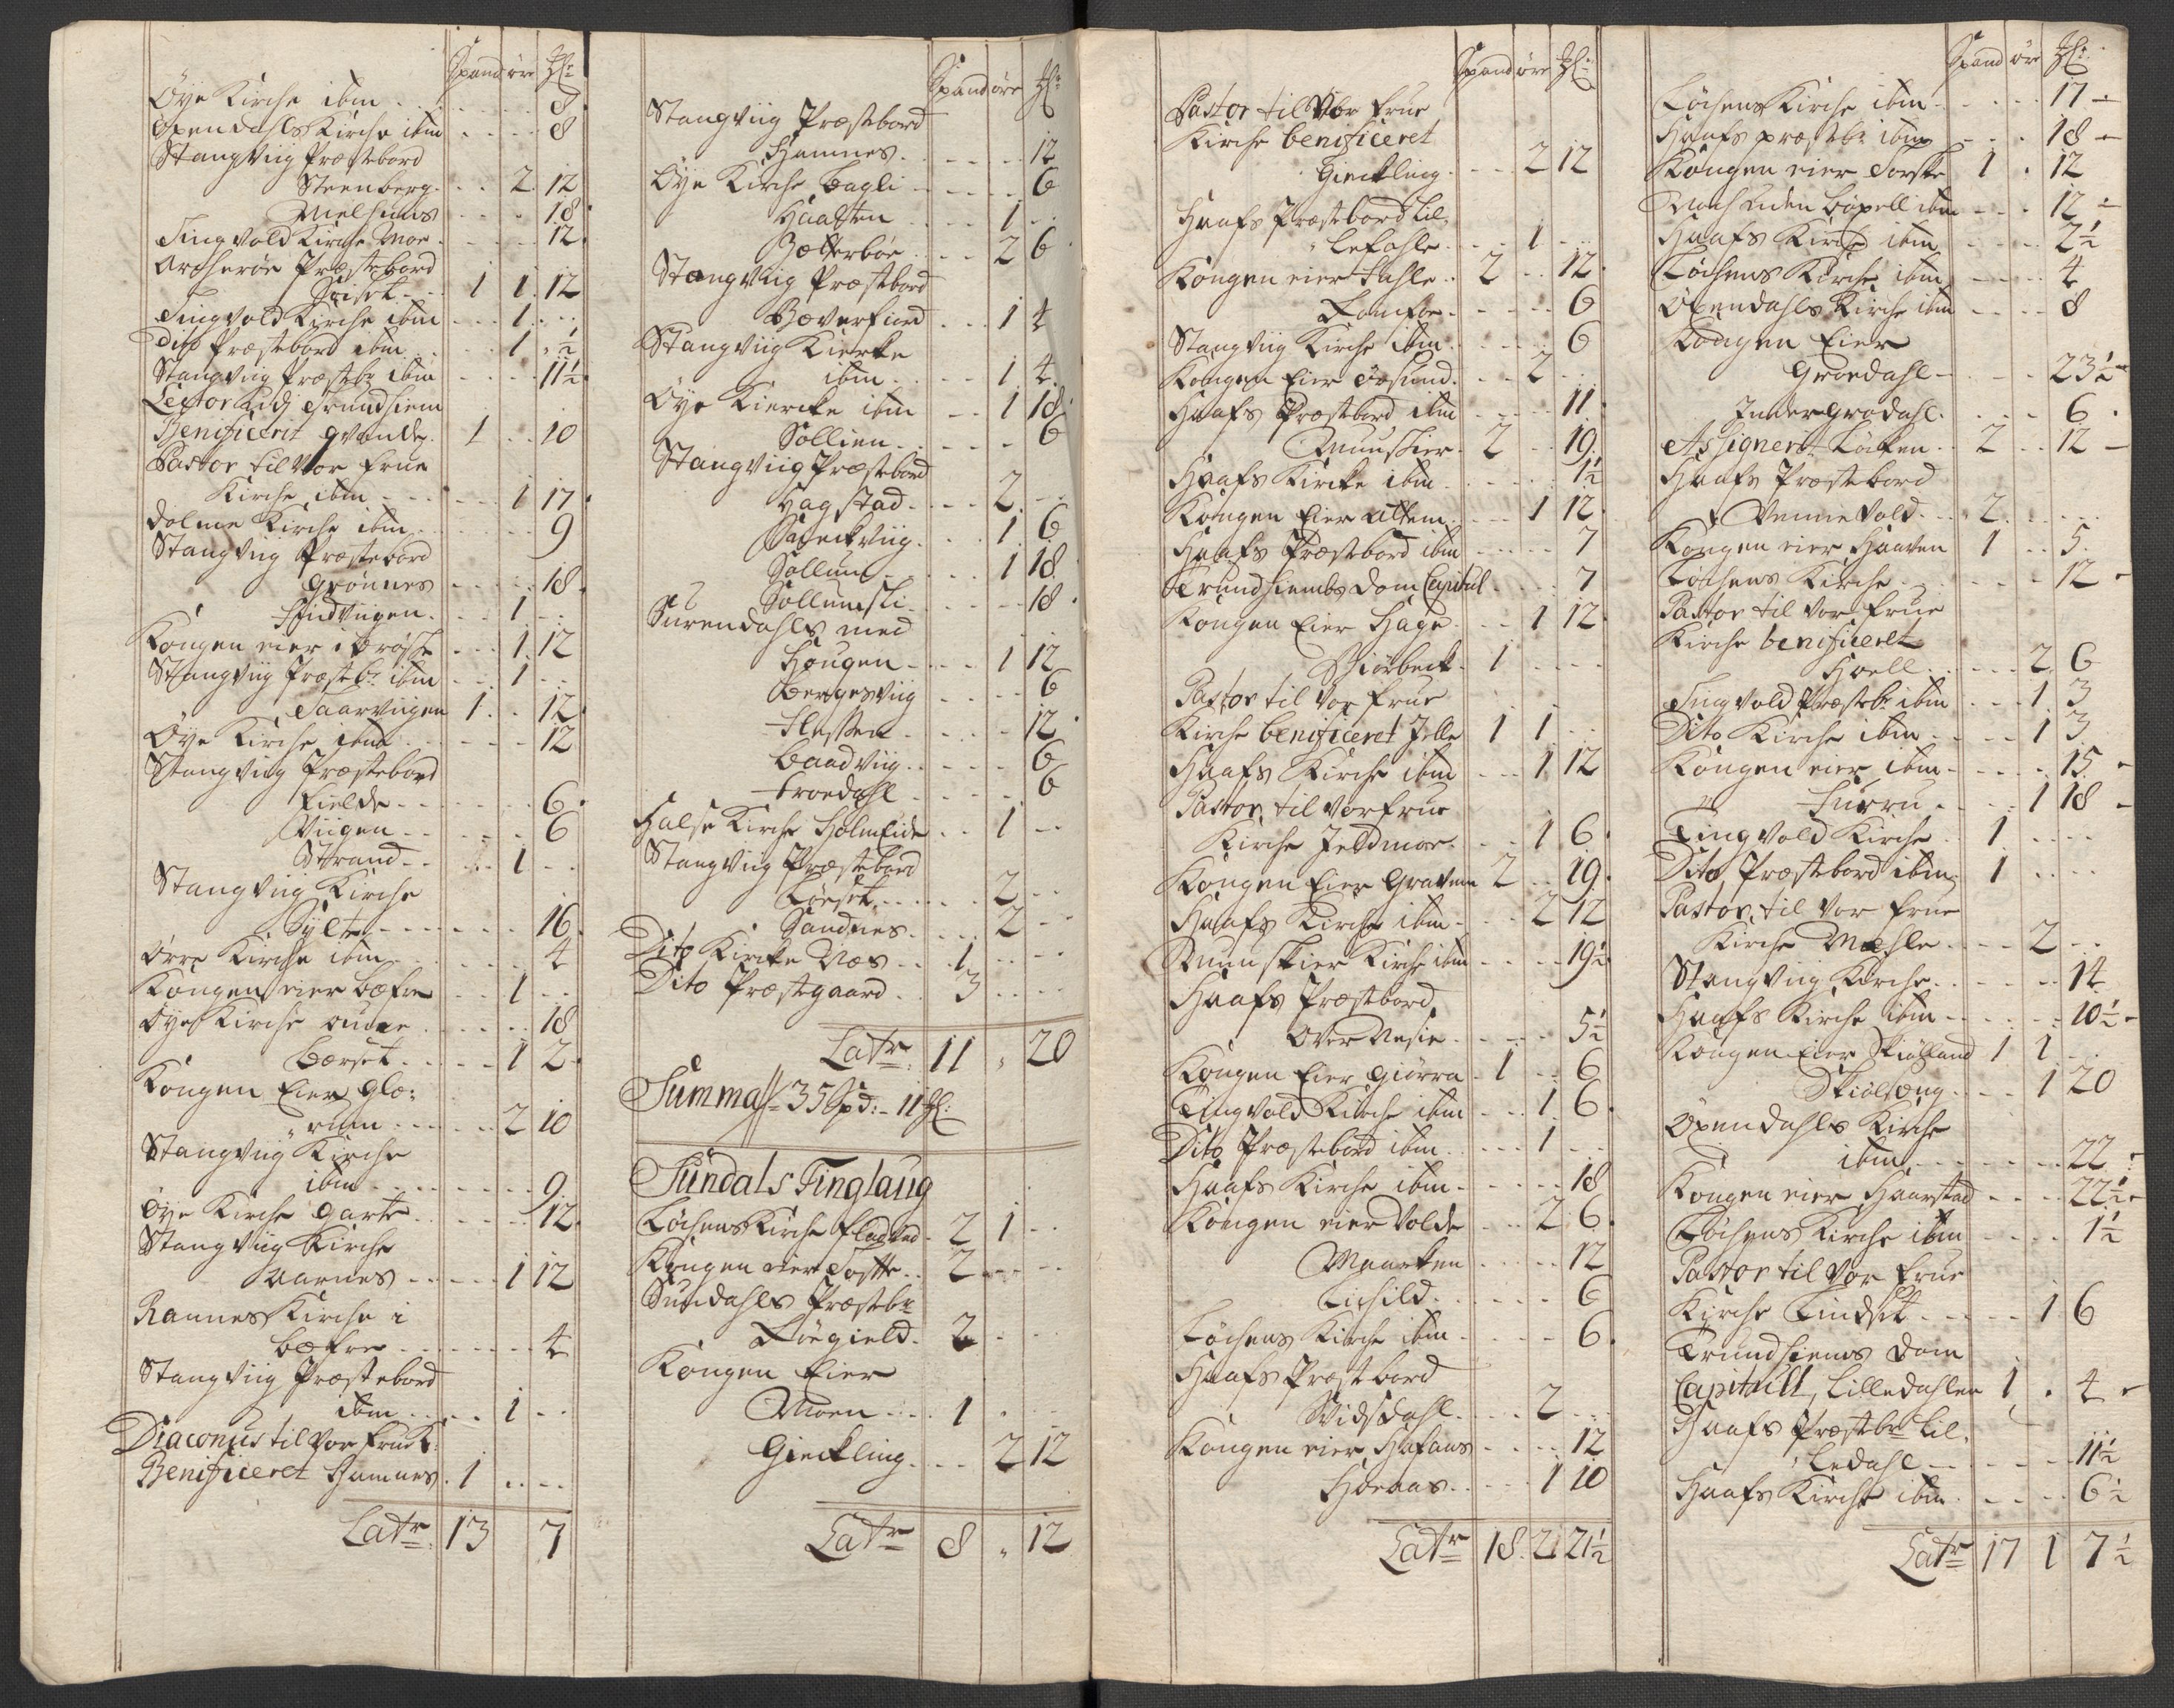 Spand øre
Øye Kirche ibm 8
Øxendahls Kirche ibm 8
Stangviig Præstebord
Steenberg 2 12
Mielhuus 18
Tingvold Kirche Moe 12
Præstebord
1 1 12
Tingvold Kirche ibm 1
Dito Præstebord ibm 1 ½
Stangviig Præsteb: ibm 11½
Lector
Benificerit 1 10
Pastor til Vor Frue
Kirche ibm 1 17
Dolme Kirche ibm 9
Stangviig Præstebord
Grønnes 18
1
Kongen eier i Brøske 1 12
Stangviig Præsteb: ibm 1
Saarviigen 1 12
Øye Kirche ibm 12
Stangviig Præstebord
Fielde 6
Viigen 6
Strand 1
Stangviig Kirche
Sylte 16
Kirche ibm 4
Kongen eier Bæfre 1
Øye Kirche 18
Bærset 1 2
Kongen Eier Glæ:
rum 2 10
Stangviig Kirche
ibm 9
Øye Kirche Garte 12
Stangviig Kirche
Aarnes 1 12
Rannes Kirche i
Bæfre 4
Stangviig Præstebord
ibm 1
Diaconus til Vor Frue K:
Benificeret Hamnes 1
Latr 13 7
Spand øre
Stangviig Præstebord
Hamnes 12
Øye Kirche Bagli 6
Haalten 1
Zetterbøe 2 6
Stangviig Præstbord
Bæverfiord 1 4
Stangviig Kierke
ibm 1 4
Øye Kiercke ibm 1 18
Sollien 6
Stangviig Præstebord
Hagstad 2
1 6
Sollum 1 18
Sollumsli 18
Surendahls med
Hougen 1 12
Bergesviig 6
12
Baadviig 6
Troedahl 6
Halse Kirche Holmeide 1
Stangviig Præstebord
Lørset 2
Sandnes 2
Dito Kircke Næs 1
Dito Præstgaard 3
Latr 11 " 20
Summa 35 Spd: - 11
Sundals Tinglaug
Løchens Kirche Fladvad 2 1
Kongen eier Toske 2
Sundahls Præsteb:
Løegield 2
Kongen Eier
Moen 1
Gieckling 2 12
Latr 8 " 12
Spand øre
Pastor til Vor Frue
Kirche benificeret
Gieckling 2 12
Haafs Præstebord Lil,
lefahle 1
Kongen eier Fahle 2 12
6
Stangviig Kirche ibm 6
Kongen Eier 2
Haafs Præstbord ibm 11
Muuskier 2 19
Haafs Kircke ibm 1½
Kongen Eier Ottem 1 12
Haafs Præstebord ibm 7
Trundhiembs Dom Capitul 7
Kongen Eier Hage 1 12
Biørbeck 1
Pastor til Vor Frue
Kirche benificeret Jelle 1 1
Haafs Kirche ibm 1 12
Pastor til Vor Frue
Kirche Jeldmoe 1 6
Kongen Eier Graven 2 19
Haafs Kirche ibm 2 12
Muuskier Kirche ibm 19½
Haafs Præstbord
Over Nesie 5½
Kongen Eier Giørra 1 6
Tingvold Kirche ibm 1 6
Dito Præstebord ibm 1
Haafs Kirche ibm 18
Kongen eier Volde 2 6
12
6
Løchens Kirche ibm 6
Haafs Præstbord
2
Kongen eier 12
Hoeaas 1 10
Latr 18 2 21½
Spand øre
Løchens Kirche ibm 17
Haafs præsteb: ibm 18
Kongen eier Torske 1 12
ibm 12
Haafs Kirche ibm 2½
Løchens Kirche ibm 4
Øxendahls Kirche ibm 8
Kongen Eier
Grøedahl 23½
Indergrødahl 6
Assignerit Løcken 2 12
Haafs Præstebord
Vennevold 2
Kongen eier Haaven 1 5
Løchens Kirche 12
Pastor til Vor Frue
Kirche benificeret
Hoell 2 6
Tingvold Præsteb: ibm 1 3
Dito Kirche ibm 1 3
Kongen eier ibm 15
Furru 1 18
Tingvold Kirche 1
Dito Præstebord ibm 1
Pastor til Vor Frue
Kirche Mæhle 2
Stangviig Kirche 14
Haafs Kirche ibm 10½
Kongen Eier Skiølland 1 1
1 20
Øxendahls Kirche
ibm 22
Kongen eier Haarstad 22½
Løchens Kirche ibm 1½
Pastor til Vor Frue
Kirche Lindset 1 6
Trundhiems Dom
Capitull, Lilledahlen 1 4
Haafs Præsteb: Lil,
ledahl 11½
Haafs Kirche ibm 6½
Latr 17 1 7½